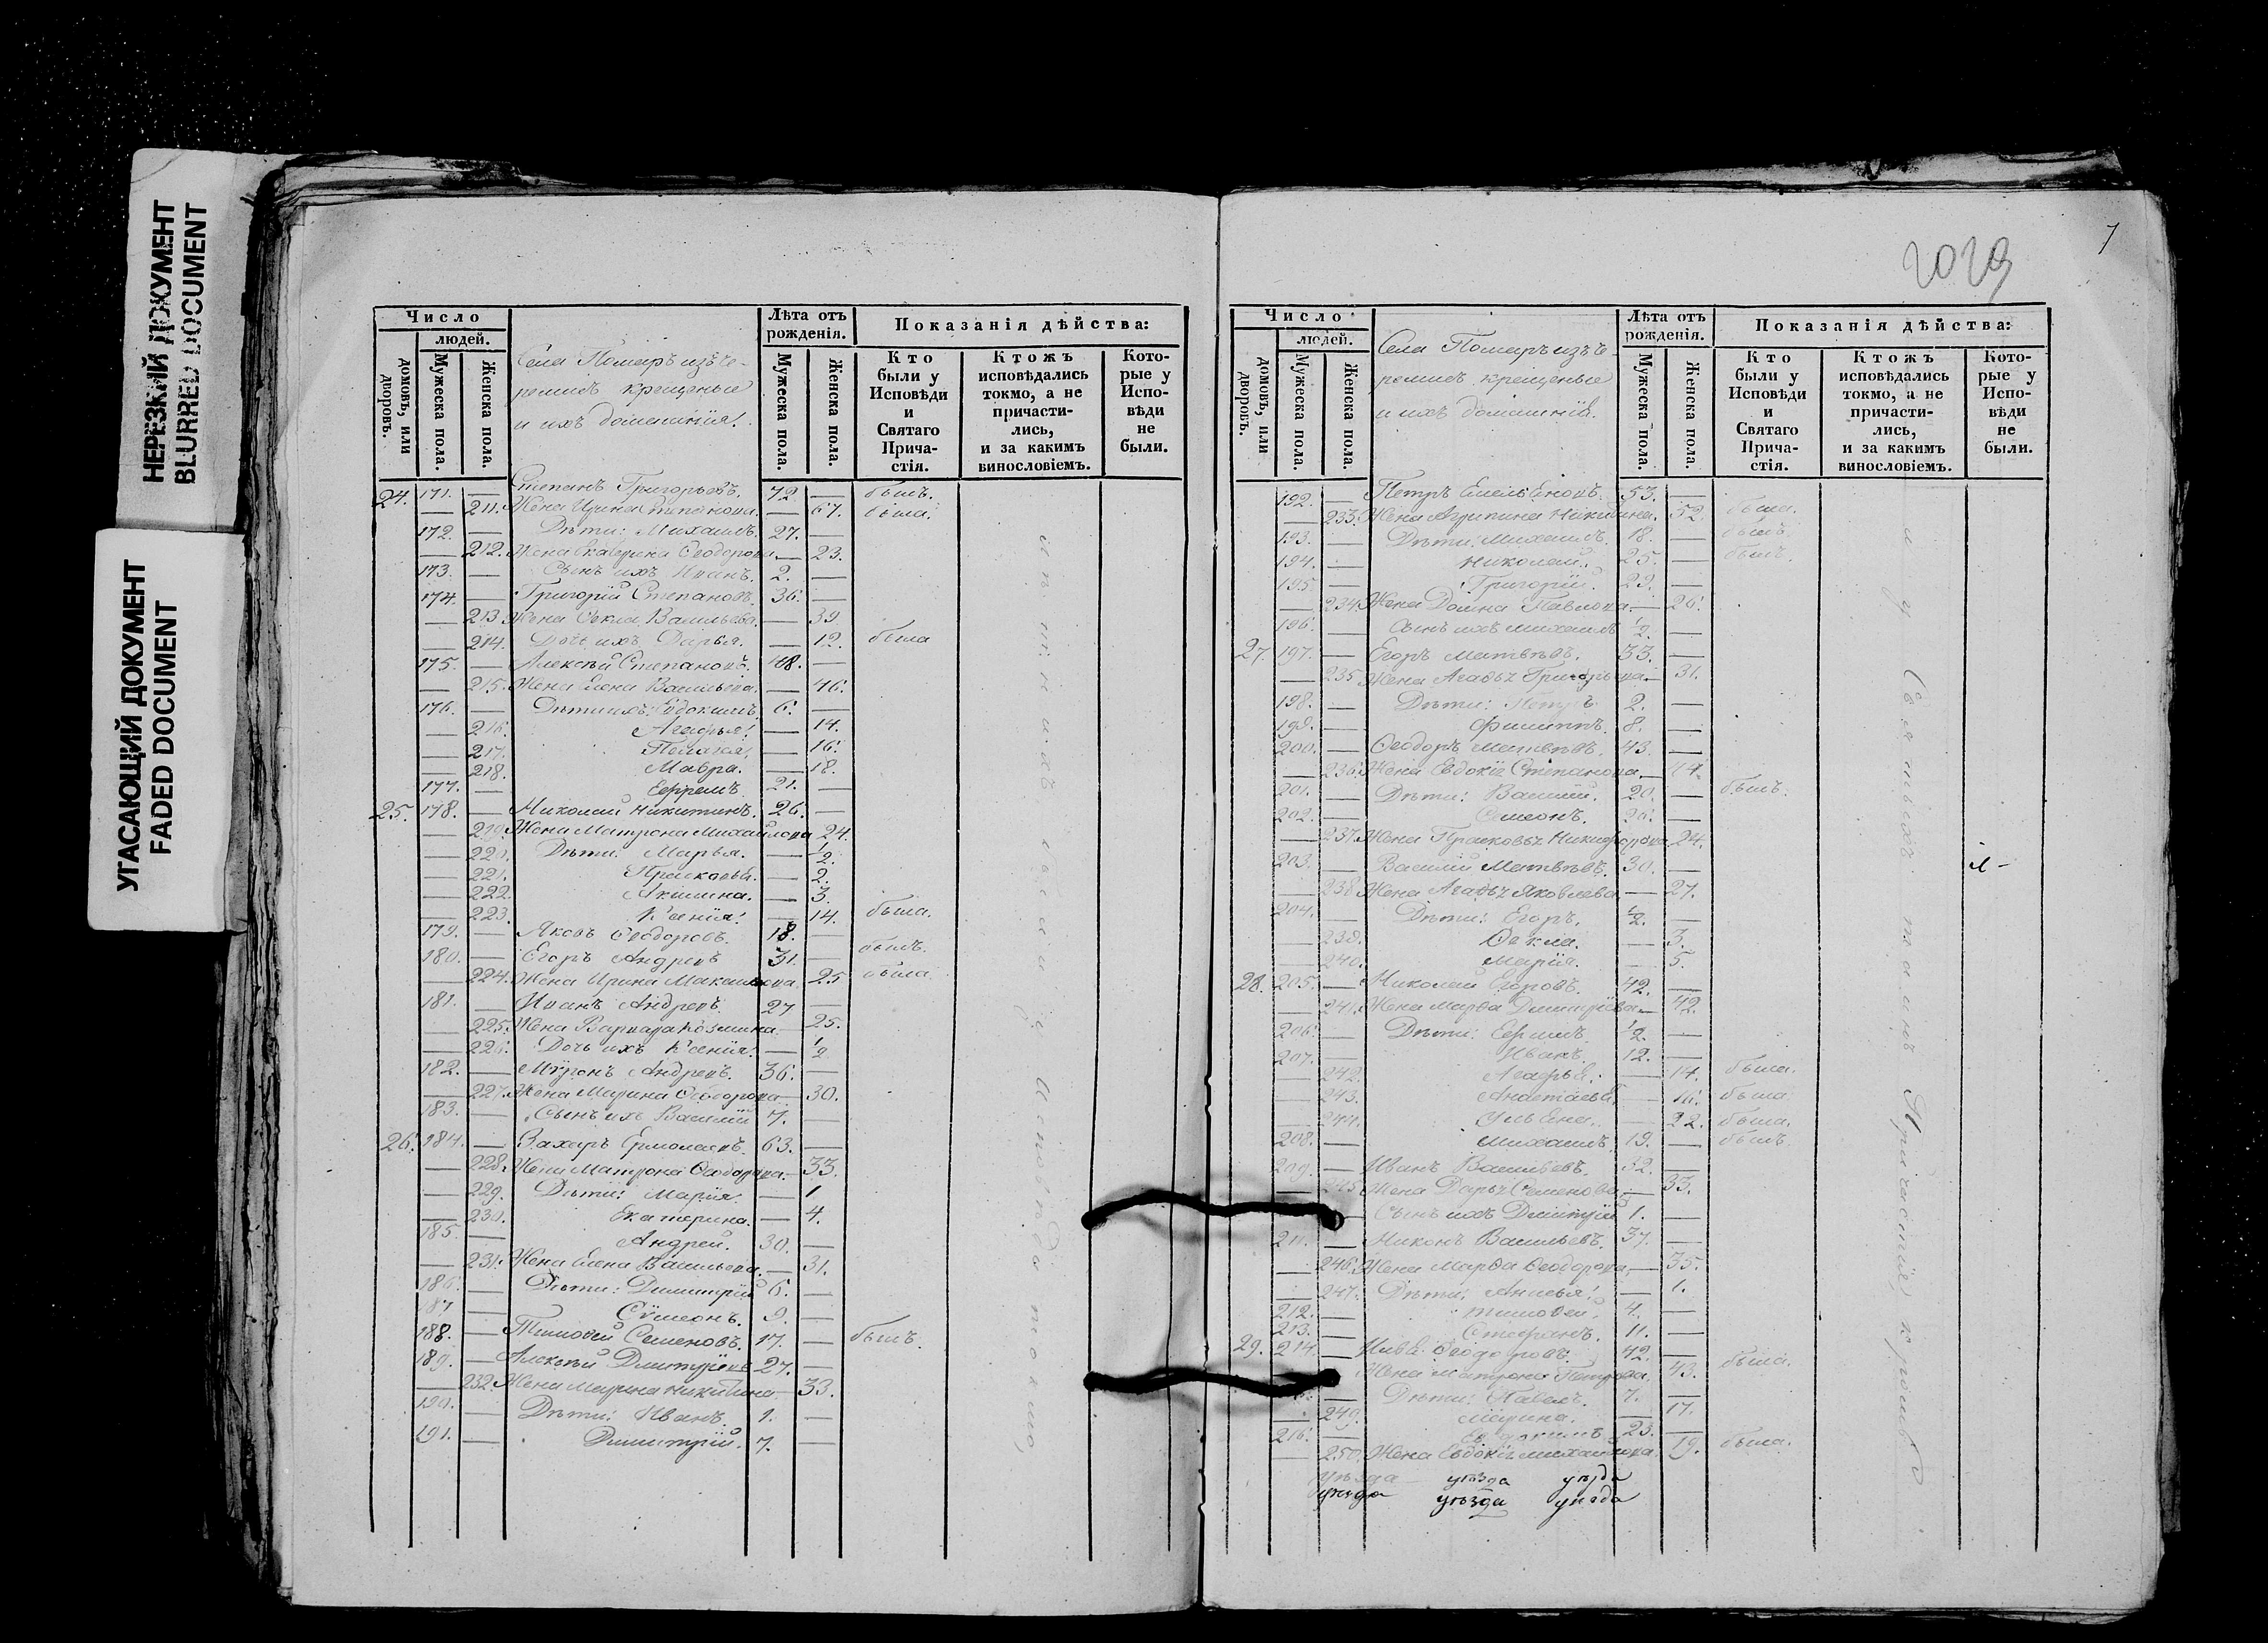 НЕРЕЗКИЙ ДОКУМЕНТ
BLURRED DOCUMENT
УГАСАЮЩИЙ ДОКУМЕНТ
FADED DOCUMENT
Число
людей.
домовъ, или дворовъ.
Мужеска пола.
Женска пола.
Села Помаръ изъ че-
ремисъ крещеные
и ихъ домашнія.
Лѣта отъ рожденія.
Мужеска пола.
Женска пола.
Показанія дѣйства:
Кто были у Исповѣди и Святаго Прича-стія.
Ктожъ исповѣдались токмо, а не причасти-лись, и за какимъ винословіемъ.
Кото-рые у Испо-вѣди не были.
24. 171. — Степанъ Григорьевъ. 72 — былъ.
— 211. Жена Ирина Степанова. — 67. была.
172. — Дѣти: Михаилъ. 27. —
— 212. Жена Екатерина Ѳеодорова — 23.
173. — Сынъ ихъ Иванъ. 2. —
174. — Григорій Степановъ. 36. —
— 213. Жена Ѳекла Васильева. — 39.
— 214. Дочь ихъ Дарья. — 12. была
175. — Алексѣй Степановъ. 48. —
— 215. Жена Елена Васильева. — 46.
176. — Дѣти ихъ: Евдокимъ. 6. —
— 216. Агафья. — 14.
— 217. Пелагія. — 16.
— 218. Мавра. — 18.
177. — Ефремъ. 21. —
25. 178. — Николай Никитинъ. 26. —
— 219. Жена Матрона Михайлова 24.
— 220. Дѣти: Марья. — 1/2.
— 221. Прасковья. — 2.
— 222. Акилина. — 3.
— 223. Ксенія. — 14. была.
179. — Яковъ Ѳеодоровъ. 18. —
180. — Егоръ Андреевъ 31. — былъ.
— 224. Жена Ирина Максимова 25 была
181. — Иванъ Андреевъ. 27 —
— 225. Жена Варвара Козмина. — 25.
— 226. Дочь ихъ Ксенія. — 1/2
182. — Миронъ Андреевъ. 36. —
— 227. Жена Марина Ѳеодорова — 30.
183. — Сынъ ихъ Василій 7. —
26. 184. — Захаръ Ермолаевъ. 63. —
— 228. Жена Матрона Ѳеодорова. — 33.
— 229. Дѣти: Марія. — 1
— 230. Екатерина. — 4.
185. — Андрей. 30. —
— 231. Жена Елена Васильева. — 31.
186. — Дѣти: Димитрій 6. —
187 — Симеонъ. 9. —
188. — Тимоѳей Семеновъ. 17. — былъ.
189. — Алексѣй Дмитріевъ 27. —
— 232. Жена Марина Никитина — 33.
190. — Дѣти: Иванъ. 1. —
191. — Димитрій. 7. —
2029
7
Число
людей.
домовъ, или дворовъ.
Мужеска пола.
Женска пола.
Села Помаръ изъ че-
ремисъ крещеные
и ихъ домашнія.
Лѣта отъ рожденія.
Мужеска пола.
Женска пола.
Показанія дѣйства:
Кто были у Исповѣди и Святаго Прича-стія.
Ктожъ исповѣдались токмо, а не причасти-лись, и за какимъ винословіемъ.
Кото-рые у Испо-вѣди не были.
192. — Петръ 53. —
— 233. Жена Агрипина Никитина. 52. была.
193. — Дѣти: Михаилъ. 18. — былъ.
194. — Николай. 25. — былъ.
195 — Григорій. 22. —
— 234. Жена Домна Павлова. — 26.
196. — Сынъ ихъ Михаилъ 1/2. —
27. 197. — Егоръ Матвѣевъ. 33. —
— 235 Жена Агаѳья Григорьева — 31.
198. — Дѣти: Петръ 2. —
199. — Филиппъ. 8. —
200. — Ѳеодоръ Матвѣевъ. 43. —
— 236. Жена Евдокія Степанова — 44.
201. — Дѣти: Василій. 20. — былъ.
202. — Симеонъ. 20. —
— 237. Жена Прасковья Никифорова 24.
203. — Василій Матвѣевъ. 30. —
— 238 Жена Агаѳья Яковлева — 27.
204. — Дѣти: Егоръ. 1/2. —
— 239. Ѳекла. — 3.
— 240. Марія. — 5.
28. 205. — Николай Егоровъ. 42. —
— 241. Жена Марѳа Димитріева — 42.
206. — Дѣти: Ефимъ 1/2. —
207. — Иванъ. 12. —
— 242. Агафья. — 14. была.
— 243. Анастасья — 16. была
— 244. Ульяна. — 22. была.
208. — Михаилъ. 19. — былъ.
209. — Иванъ Васильевъ. 32. —
— 245 Жена Дарья Семенова — 33.
— Сынъ ихъ Димитрій 1. —
211. — Никонъ Васильевъ. 37. —
— 246. Жена Марѳа Ѳеодорова — 35.
— 247. Дѣти: Анисья. — 1.
212. — Тимоѳей. 4. —
213. — Стефанъ. 11. —
29. 214. — Ѳеодоровъ. 42. —
Жена Матрона Петрова. 43. была.
— Дѣти: Павелъ. 7. —
— 249. Марина. — 17.
216. — Евдокимъ 23. —
— 250. Жена Евдокія Михайлова. 19. была.
уѣзда уѣзда уѣзда
уѣзда уѣзда уѣзда